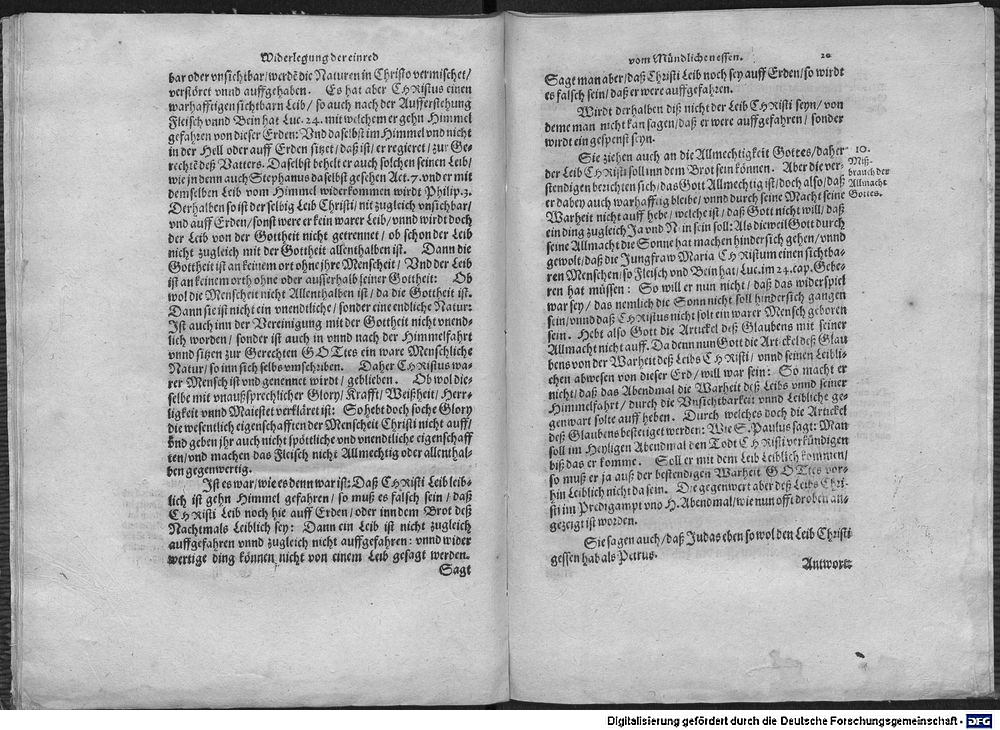 Widerlegung der einred
bar oder vnsichtbar/ werdē die Naturen in Christo vermischet/
verstöret vnnd auffgehaben. Es hat aber CHRistus einen
warhafftigen sichtbarn Leib/ so auch nach der Aufferstehung
Fleisch vnnd Bein hat Luc. 24. mit welchem er gehn Himmel
gefahren von dieser Erden: Vnd daselbst im Himmel vnd nicht
in der Hell oder auff Erden sitzet/ daß ist/ er regieret/ zur Ge-
rechtē deß Vatters. Daselbst behelt er auch solchen seinen Leib/
wie jn denn auch Stephanus daselbst gesehen Act. 7. vnder mit
demselben Leib vom Himmel widerkommen wirdt Philip. 3.
Derhalben so ist der selbig Leib Christi/ nit zugleich vnsichbar/
vnd auff Erden/ sonst were er kein warer Leib/ vnnd wirdt doch
der Leib von der Gottheit nicht getrennet/ ob schon der Leib
nicht zugleich mit der Gottheit allenthalben ist. Dann die
Gottheit ist an keinem ort ohne jhre Menscheit/ Vnd der Leib
ist an keinem orth ohne oder ausserhalb seiner Gottheit: Ob
wol die Menscheit nicht Allenthalben ist/ da die Gottheit ist.
Dann sie ist nicht ein vnendtliche/ sonder eine endliche Natur:
Ist auch inn der Vereinigung mit der Gottheit nicht vnend-
lich worden/ sonder ist auch in vnnd nach der Himmelfahrt
vnnd sitzen zur Gerechten GOTtes ein ware Menschliche
Natur/ so inn sich selbs vmschriben. Daher CHRistus wa-
rer Mensch ist vnd genennet wirdt/ geblieben. Ob wol die-
selbe mit vnaußsprechlicher Glory/ Krafft/ Weißheit/ Herr-
ligkeit vnnd Maiestet verkläret ist: So hebt doch soche Glory
die wesentlich eigenschafften der Menscheit Christi nicht auff/
vnd geben jhr auch nicht spöttliche vnd vnendtliche eigenschaff
ten/ vnd machen das Fleisch nicht Allmechtig oder allenthal-
ben gegenwertig.
Ist es war/ wie es denn war ist: Daß CHRisti Leib leib-
lich ist gehn Himmel gefahren/ so muß es falsch sein/ daß
CHRisti Leib noch hie auff Erden/ oder inn dem Brot deß
Nachtmals Leiblich sey: Dann ein Leib ist nicht zugleich
auffgefahren vnnd zugleich nicht auffgefahren: vnnd wider
wertige ding können nicht von einem Leib gesagt werden.
Sagt
vom Mündlichen essen. 20
Sagt man aber/ daß Christi Leib noch sey auff Erden/ so wirdt
es falsch sein/ daß er were auffgefahren.
Wirdt derhalben diß nicht der Leib CHRisti seyn/ von
deme man nicht kan sagen/ daß er were auffgefahren/ sonder
wirdt ein gespenst seyn.
Sie ziehen auch an die Allmechtigkeit Gottes/ daher
der Leib CHRisti soll inn dem Brot sein können. Aber die ver-
stendigen berichten sich/ das Gott Allmechtig ist/ doch also/ daß
er dabey auch warhafftig bleibe/ vnnd durch seine Macht seine
Warheit nicht auff hebe/ welche ist/ daß Gott nicht will/ daß
ein ding zugleich Ja vnd Nein sein soll: Als dieweil Gott durch
seine Allmacht die Sonne hat machen hinder sich gehen/ vnnd
gewolt/ daß die Jungfraw Maria CHRistum einen sichtba-
ren Menschen/ so Fleisch vnd Bein hat/ Luc. im 24. cap. Gebe-
ren hat müssen: So will er nun nicht/ daß das widerspiel
war sey/ das nemlich die Sonn nicht soll hindersich gangen
sein/ vnnd daß CHRistus nicht solt ein warer Mensch geboren
sein. Hebt also Gott die Artickel deß Glaubens mit seiner
Allmacht nicht auff. Da denn nun Gott die Artickel deß Glau
bens von der Warheit deß Leibs CHRisti/ vnnd seinen Leibli-
chen abwesen von dieser Erd/ will war sein: So macht er
nicht/ daß das Abendmal die Warheit deß Leibs vnnd seiner
Himmelfahrt/ durch die Vnsichtbarkeit vnnd Leibliche ge-
genwart solte auff heben. Durch welches doch die Artickel
deß Glaubens bestetiget werden: Wie S. Paulus sagt: Man
soll im Heyligen Abendmal den Todt CHRisti verkündigen
biß das er komme. Soll er mit dem Leib Leiblich kommen/
so muß er ja auß der bestendigen Warheit GOTtes vor-
hin Leiblich nicht da sein. Die gegenwert aber deß Leibs Chri-
sti im Predigampt vnd H. Abendmal/ wie nun offt droben an-
gezeigt ist worden.
Sie sagen auch/ daß Judas eben so wol den Leib Christi
gessen hab als Petrus.
Antwort:
10.
Miß-
brauch der
Allmacht
Gottes.
Digitalisierung gefördert durch die Deutsche Forschungsgemeinschaft - DFG